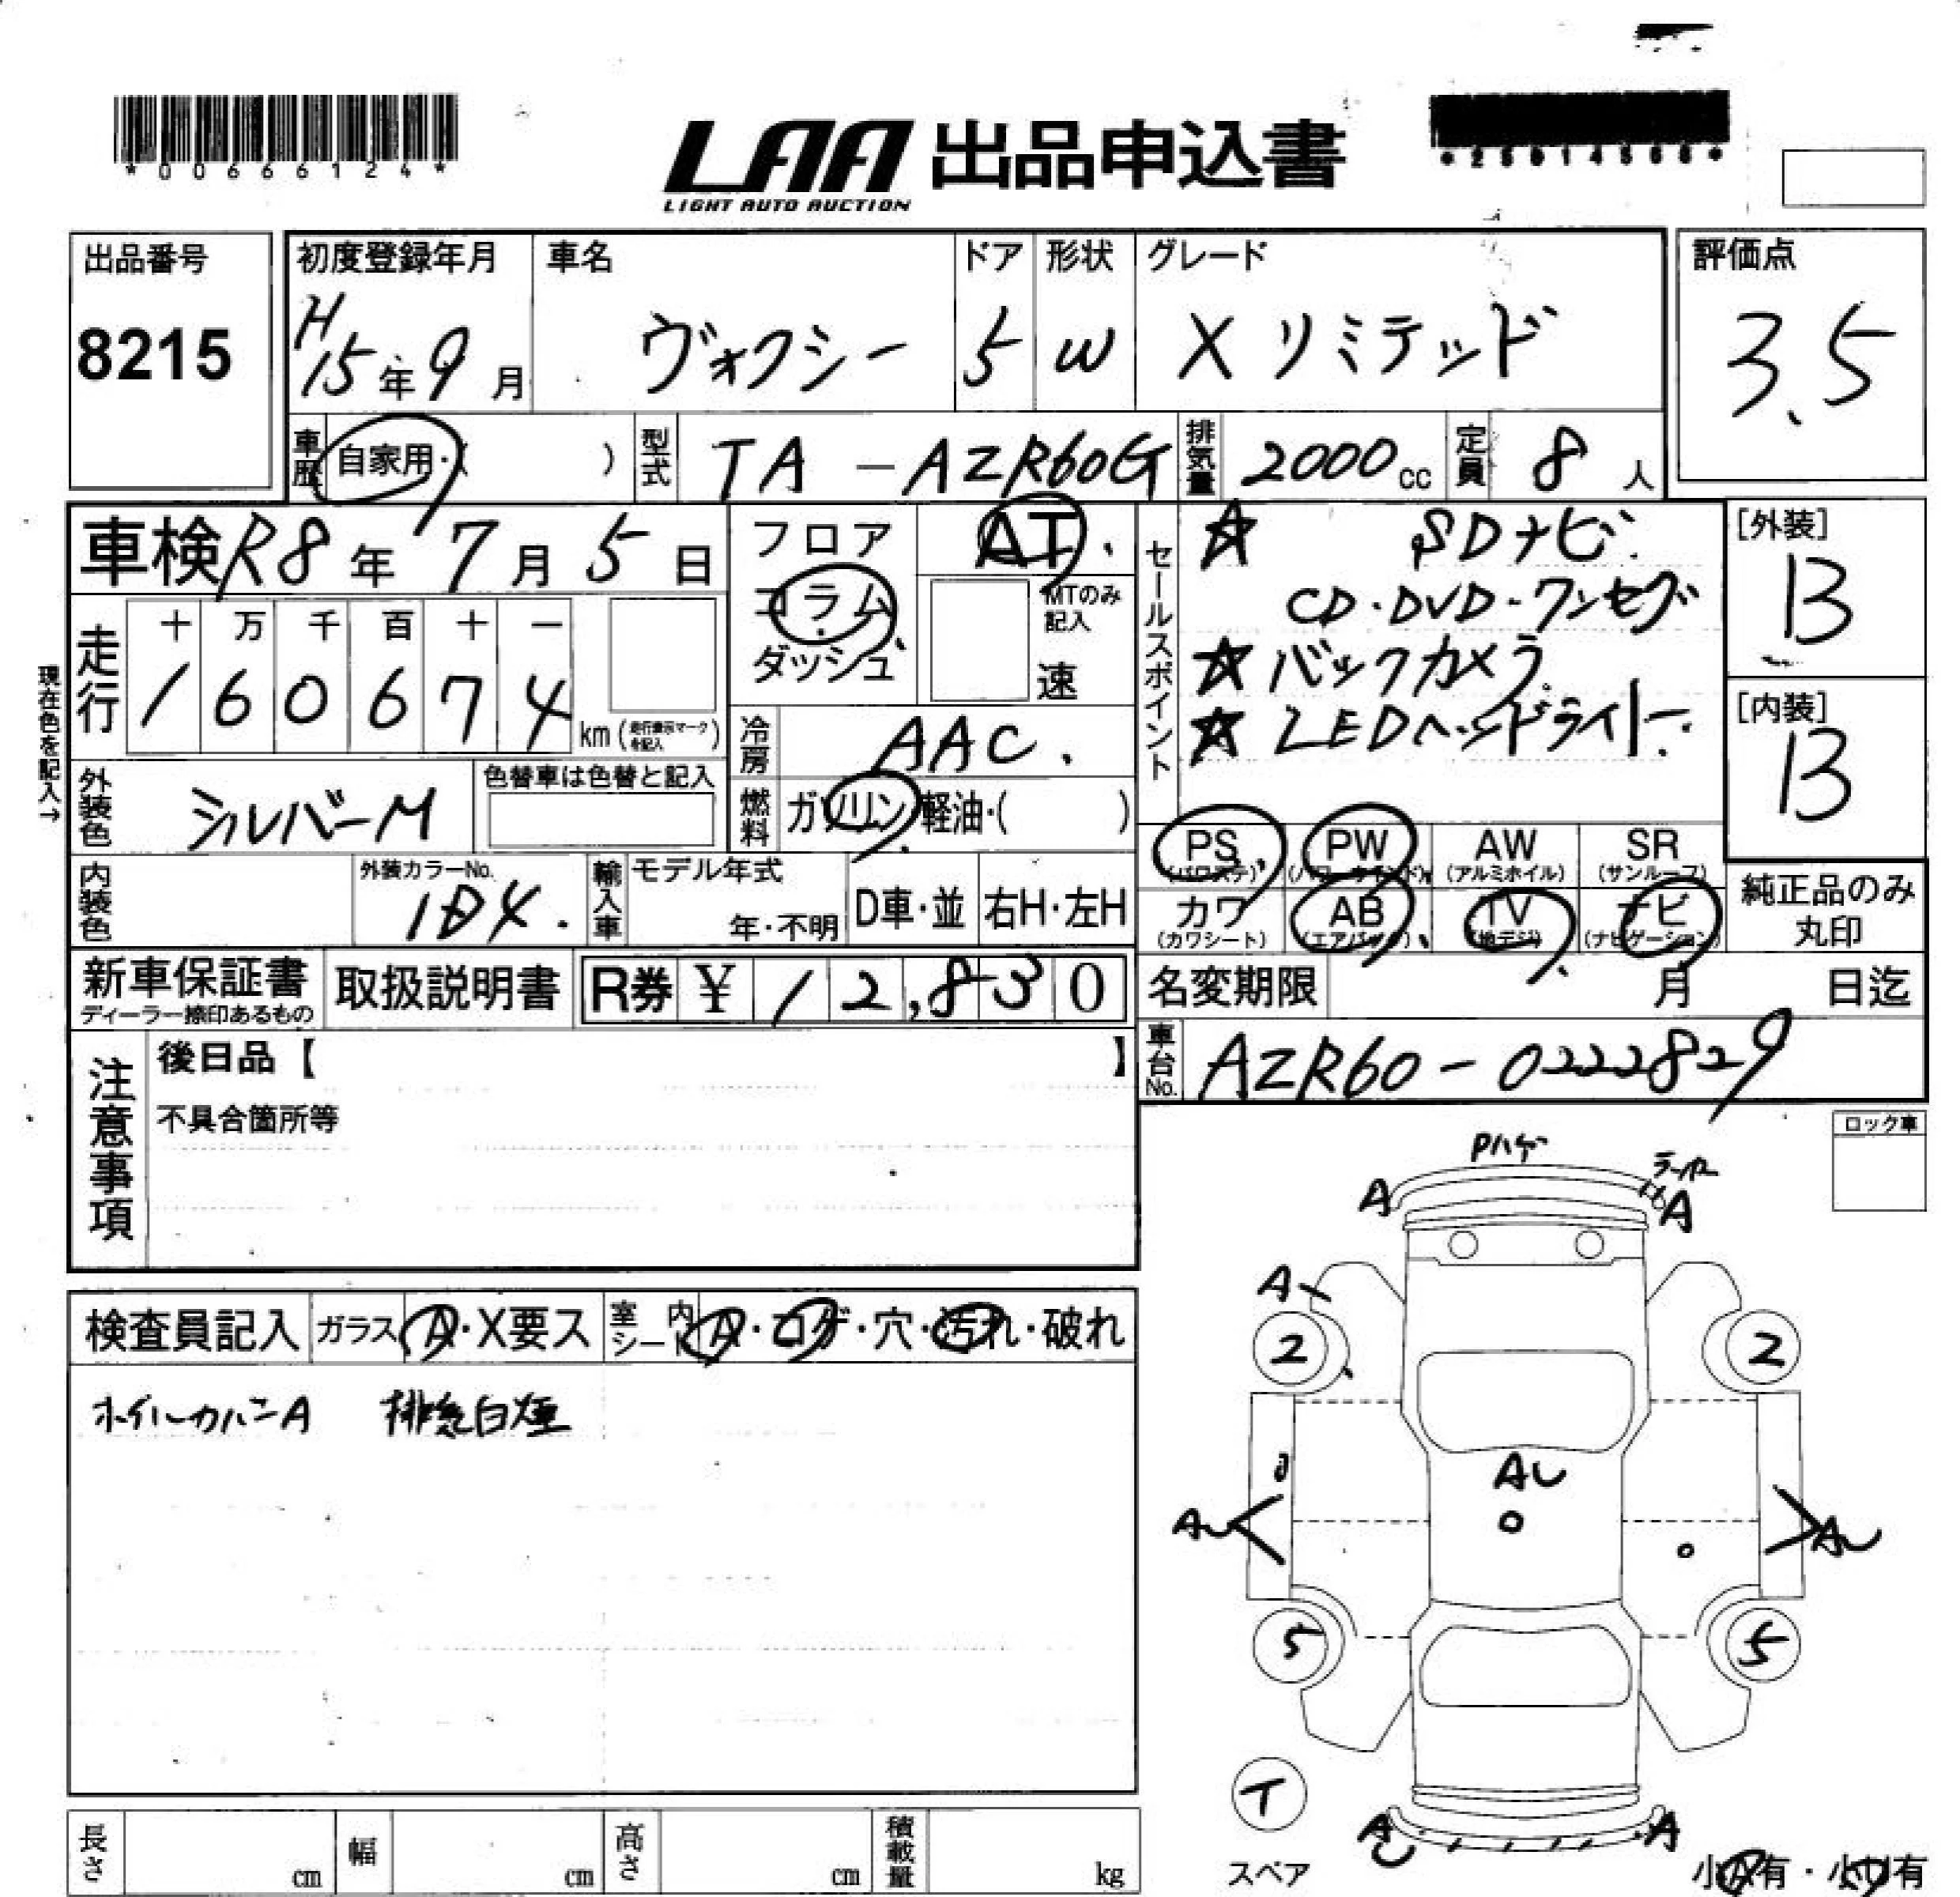 *00666124*
LAA 出品申込書
LIGHT AUTO AUCTION
出品番号
8215
初度登録年月
H15年9月
車名
ヴォクシー
ドア
5
形状
W
グレード
Xリミテッド
評価点
3.5
車歴
自家用・( )
型式
TA-AZR60G
排気量
2000cc
定員
8人
車検 R8年7月5日
フロア
コラム
ダッシュ
AT
MTのみ記入
速
セールスポイント
☆ SDナビ
CD・DVD・ワンセグ
☆バックカメラ
☆LEDヘッドライト
[外装]
B
[内装]
B
現在色を記入→
走行
十 万 千 百 十 一
1 6 0 6 7 4 km
冷房
AAC
外装色
シルバーM
色替車は色替と記入
燃料
ガソリン・軽油・( )
PS
(パワステ)
PW
(パワーウインド)
AW
(アルミホイル)
SR
(サンルーフ)
カワ
(カワシート)
AB
(エアバッグ)
TV
(地デジ)
ナビ
(ナビゲーション)
純正品のみ
丸印
内装色
外装カラーNo.
1D4
輸入車
モデル年式
年・不明
D車・並
右H・左H
新車保証書
取扱説明書
R券 ¥12,830
名変期限 月 日迄
車台No.
AZR60-0222829
注意事項
後日品【 】
不具合箇所等
ロック車
検査員記入
ガラス
A・X要ス
室内シート
A・コゲ・穴・汚れ・破れ
ホイールカバーA 排気白煙
Pハゲ
A
A
A
2
2
AU
AU
AU
5
5
T
スペア
A
A
小A有・小U有
長さ cm
幅 cm
高さ cm
積載量 kg